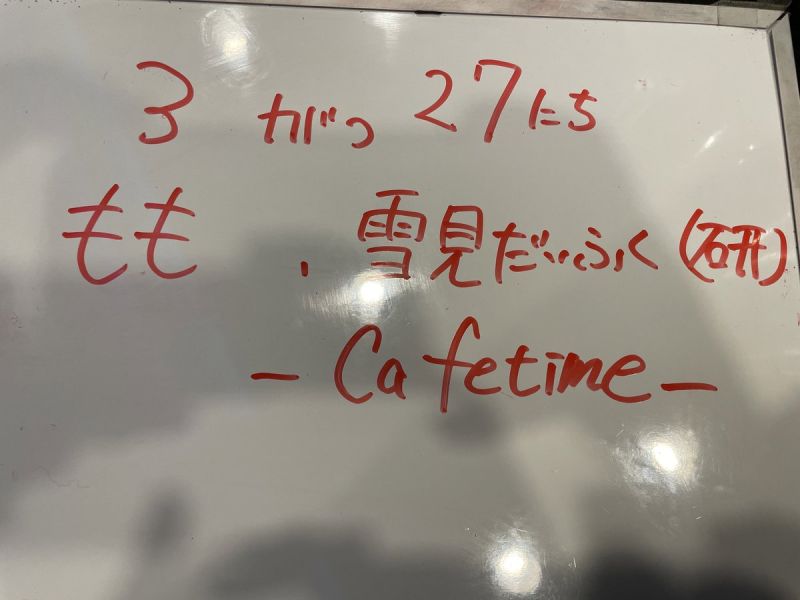 3がつ27にち
もも、雪見だいふく(研)
- Cafetime -